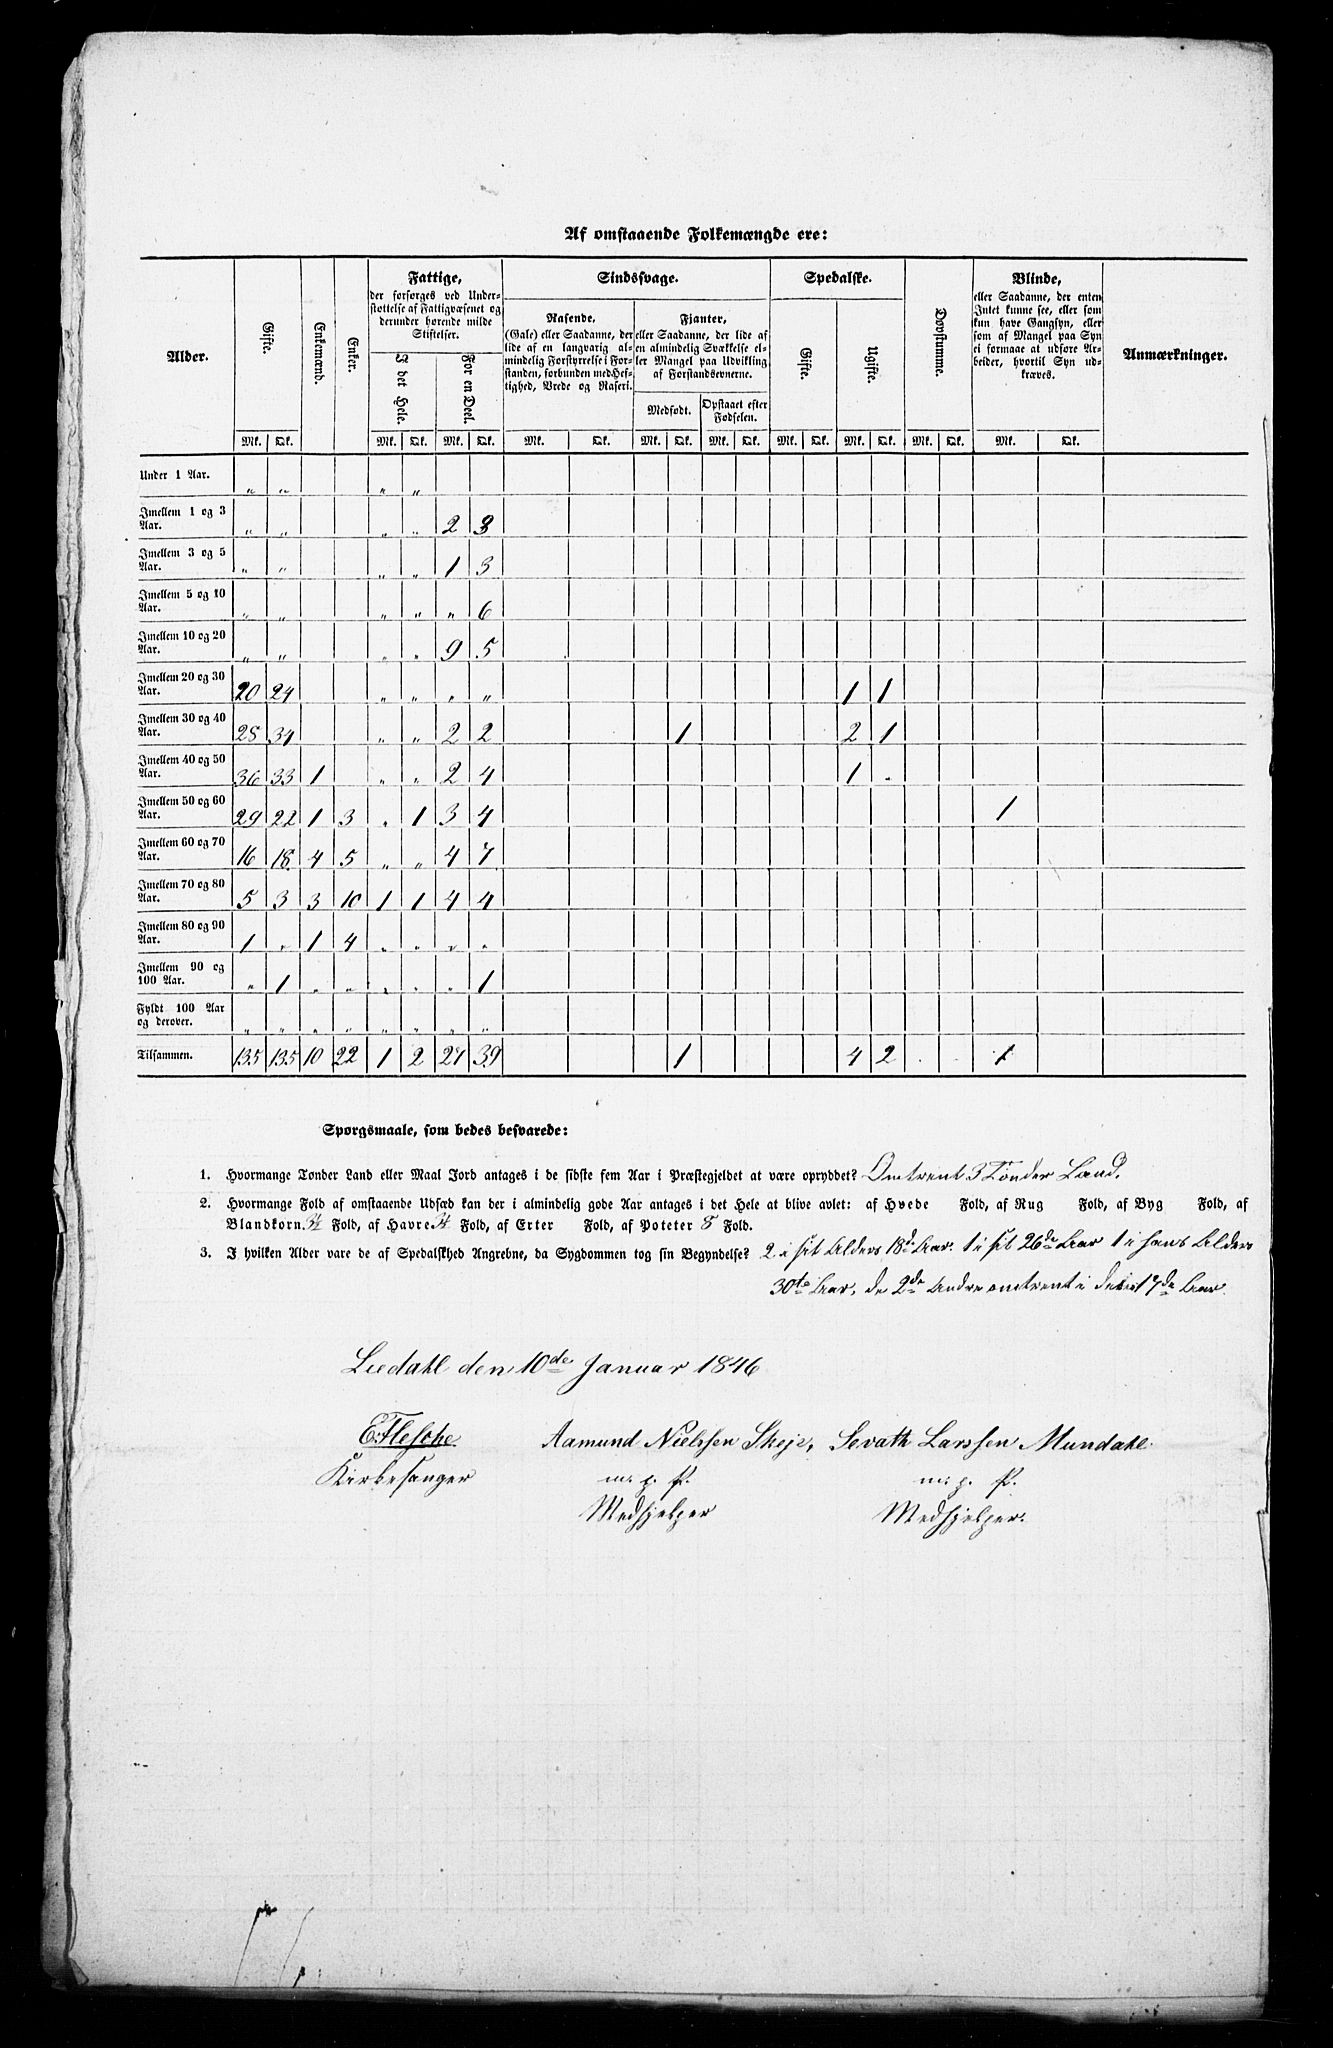 Af omstaaende Folkemængde ere:
Alder. Gifte. Enkemænd. Enker. Fattige, Sindssvage. Spedalske. Døvstumme. Blinde, Anmærkninger.
der forsørges ved Under-
støttelse af Fattigvæsenet og
derunder hørende milde
Stiftelser.
I det Hele. For en Deel.
Rasende.
(Gale) eller Saadanne, der
lide af en langvarig al-
mindelig Forstyrrelse i For-
standen, forbunden med Hef-
tighed, Vrede og Raseri.
Fjanter,
eller Saadanne, der lide af
en almindelig Svækkelse el-
ler Mangel paa Udvikling
af Forstandsevnerne.
Medfødt. Opstaaet efter
Fødselen.
Gifte. Ugifte.
eller Saadanne, der enten
Intet kunne see, eller som
kun have Gangsyn, eller
som af Mangel paa Syn
ei formaae at udføre Ar-
beider, hvortil Syn ud-
kræves.
Mk. Qk. Mk. Qk. Mk. Qk. Mk. Qk. Mk. Qk. Mk. Qk. Mk. Qk. Mk. Qk. Mk. Qk. Mk. Qk.
Under 1 Aar. " " " "
Imellem 1 og 3
Aar. " " " " 2 3
Imellem 3 og 5
Aar. " " " " 1 3
Imellem 5 og 10
Aar. " " " " " 6
Imellem 10 og 20
Aar. " " " " 9 5
Imellem 20 og 30
Aar. 20 24 " " " " 1 1
Imellem 30 og 40
Aar. 28 34 " " 2 2 1 2 1
Imellem 40 og 50
Aar. 36 33 1 " " 2 4 1 "
Imellem 50 og 60
Aar. 29 22 1 3 " 1 3 4 1
Imellem 60 og 70
Aar. 16 18 4 5 " " 4 7
Imellem 70 og 80
Aar. 5 3 3 10 1 1 4 4
Imellem 80 og 90
Aar. 1 " 1 4 " " " "
Imellem 90 og
100 Aar. " 1 " " " " " 1
Fyldt 100 Aar
og derover. " " " " " " " "
Tilsammen. 135 135 10 22 1 2 27 39 1 4 2 . . 1
Spørgsmaale, som bedes besvarede:
1. Hvormange Tønder Land eller Maal Jord antages i de sidste fem Aar i Præstegjeldet at være opryddet? Omtrent 3 Tønder Land.
2. Hvormange Fold af omstaaende Udsæd kan der i almindelig gode Aar antages i det Hele at blive avlet: af Hvede Fold, af Rug Fold, af Byg Fold, af
Blandkorn Fold, af Havre Fold, af Erter Fold, af Poteter 8 Fold.
3. I hvilken Alder vare de af Spedalskhed Angrebne, da Sygdommen tog sin Begyndelse? 2 i sit Alders 18de Aar. 1 i sit 26de Aar 1 i hans Alders
30te Aar, de 2de Andre omtrent i deres 17de Aar.
Leedahl den 10de Januar 1846
E. Flesche Aamund Nielssen Skeje, Sevath Larssen Mundahl
Kirkesanger m. p. P. m. p. P.
Medhjelper Medhjelper.